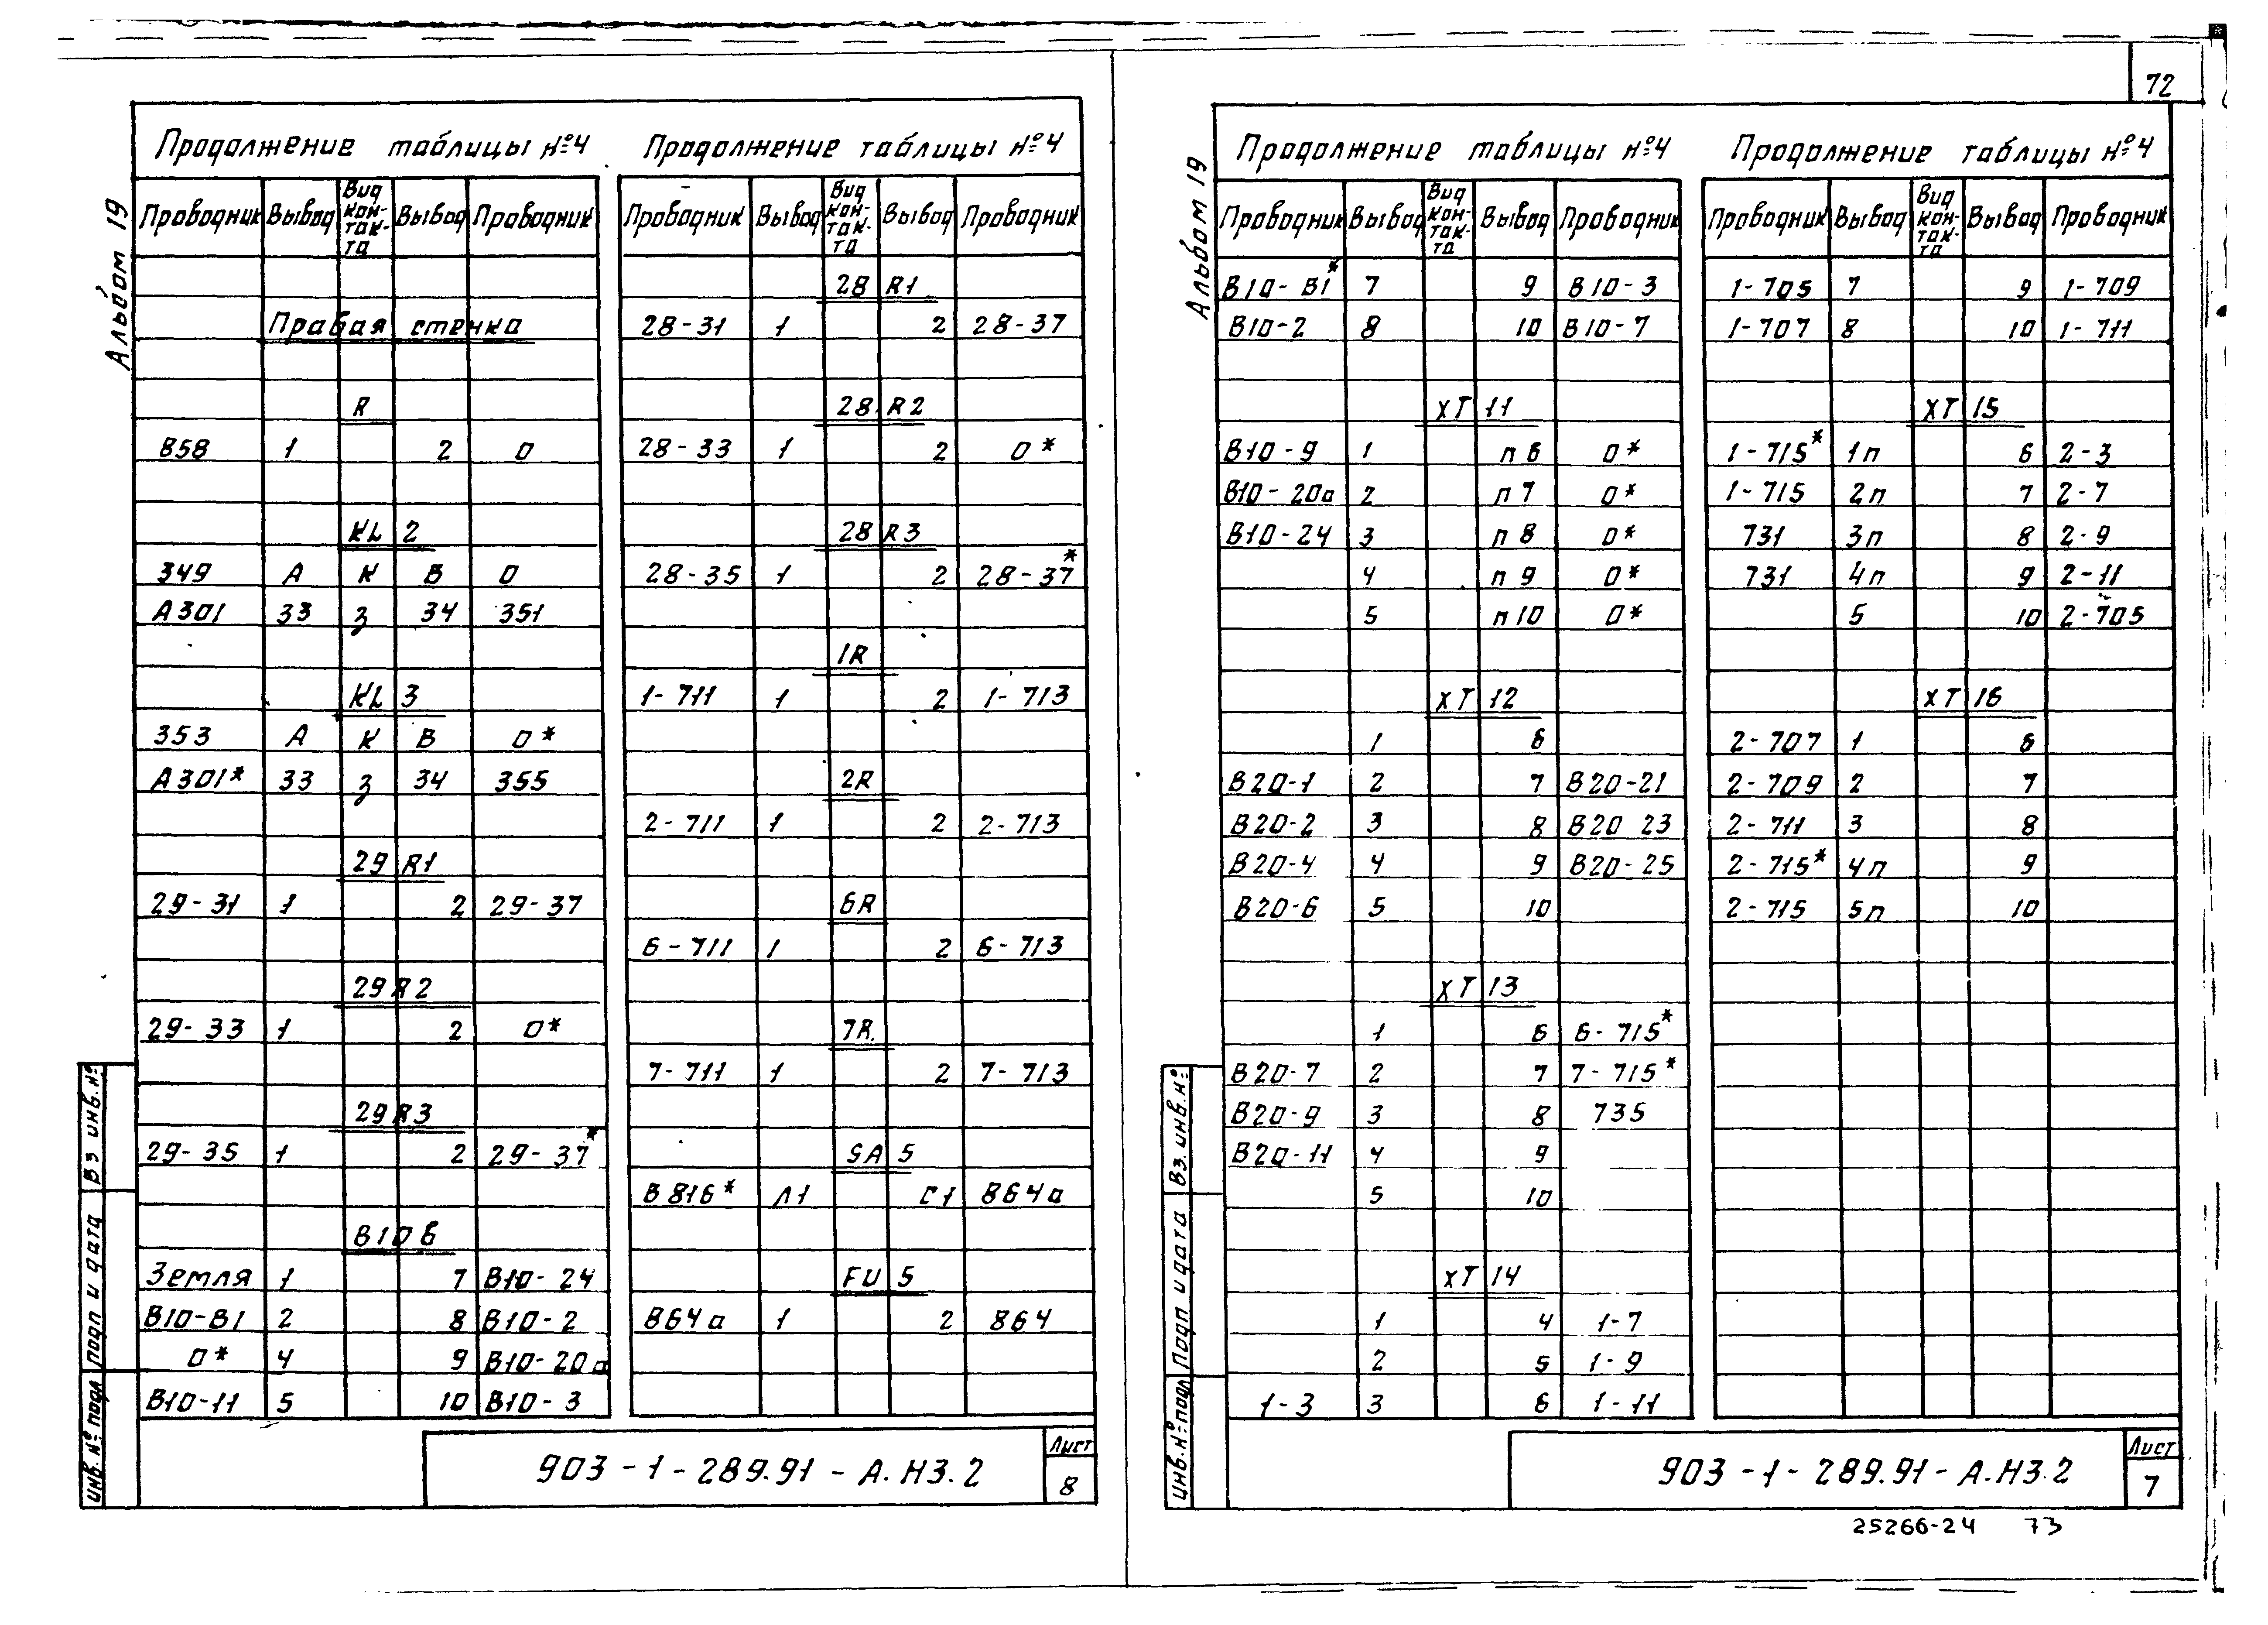 72
Альбом 19
Продолжение таблицы №4
Проводник Вывод Вид кон-так-та Вывод Проводник
Правая стенка
R
858 1 2 0
KL 2
349 А К В 0
А301 33 з 34 351
KL 3
353 А К В 0*
А301* 33 з 34 355
29 R1
29-31 1 2 29-37
29 R2
29-33 1 2 0*
29 R3
29-35 1 2 29-37*
В10 б
Земля 1 7 В10-24
В10-В1 2 8 В10-2
0* 4 9 В10-20а
В10-11 5 10 В10-3
Продолжение таблицы №4
Проводник Вывод Вид кон-так-та Вывод Проводник
28 R1
28-31 1 2 28-37
28 R2
28-33 1 2 0*
28 R3
28-35 1 2 28-37*
1R
1-711 1 2 1-713
2R
2-711 1 2 2-713
6R
6-711 1 2 6-713
7R
7-711 1 2 7-713
SA 5
В816* Л1 С1 864а
FU 5
864а 1 2 864
Вз инв.№
Подп и дата
Инв.№ подл
903-1-289.91-А.НЗ.2
Лист
8
Альбом 19
Продолжение таблицы №4
Проводник Вывод Вид кон-так-та Вывод Проводник
В10-В1* 7 9 В10-3
В10-2 8 10 В10-7
ХТ 11
В10-9 1 п6 0*
В10-20а 2 п7 0*
В10-24 3 п8 0*
4 п9 0*
5 п10 0*
ХТ 12
1 6
В20-1 2 7 В20-21
В20-2 3 8 В20 23
В20-4 4 9 В20-25
В20-6 5 10
ХТ 13
1 6 6-715*
В20-7 2 7 7-715*
В20-9 3 8 735
В20-11 4 9
5 10
ХТ 14
1 4 1-7
2 5 1-9
1-3 3 6 1-11
Продолжение таблицы №4
Проводник Вывод Вид кон-так-та Вывод Проводник
1-705 7 9 1-709
1-707 8 10 1-711
ХТ 15
1-715* 1п 6 2-3
1-715 2п 7 2-7
731 3п 8 2-9
731 4п 9 2-11
5 10 2-705
ХТ 16
2-707 1 6
2-709 2 7
2-711 3 8
2-715* 4п 9
2-715 5п 10
Вз. инв.№
Подп и дата
Инв.№ подл
903-1-289.91-А.НЗ.2
Лист
7
25266-24 73